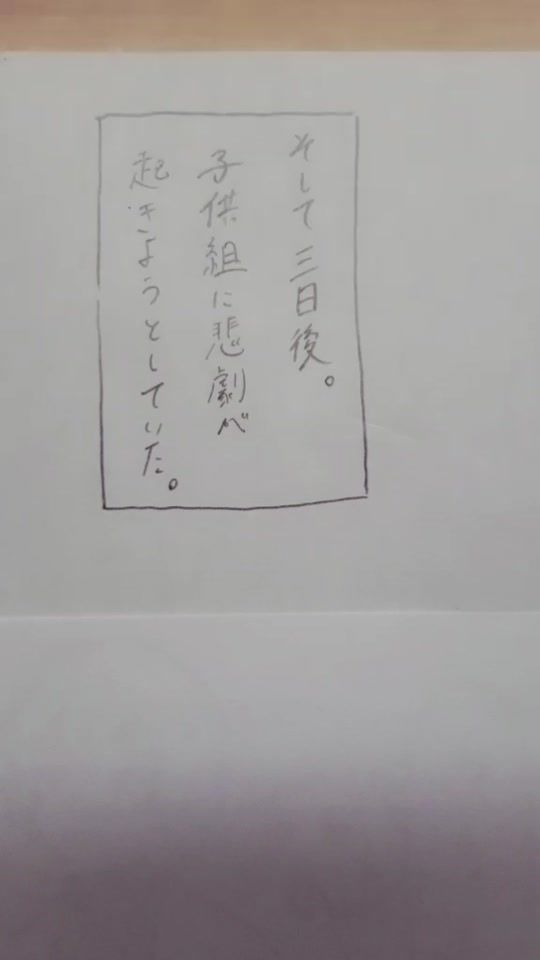 そして三日後。
子供組に悲劇が
起きようとしていた。